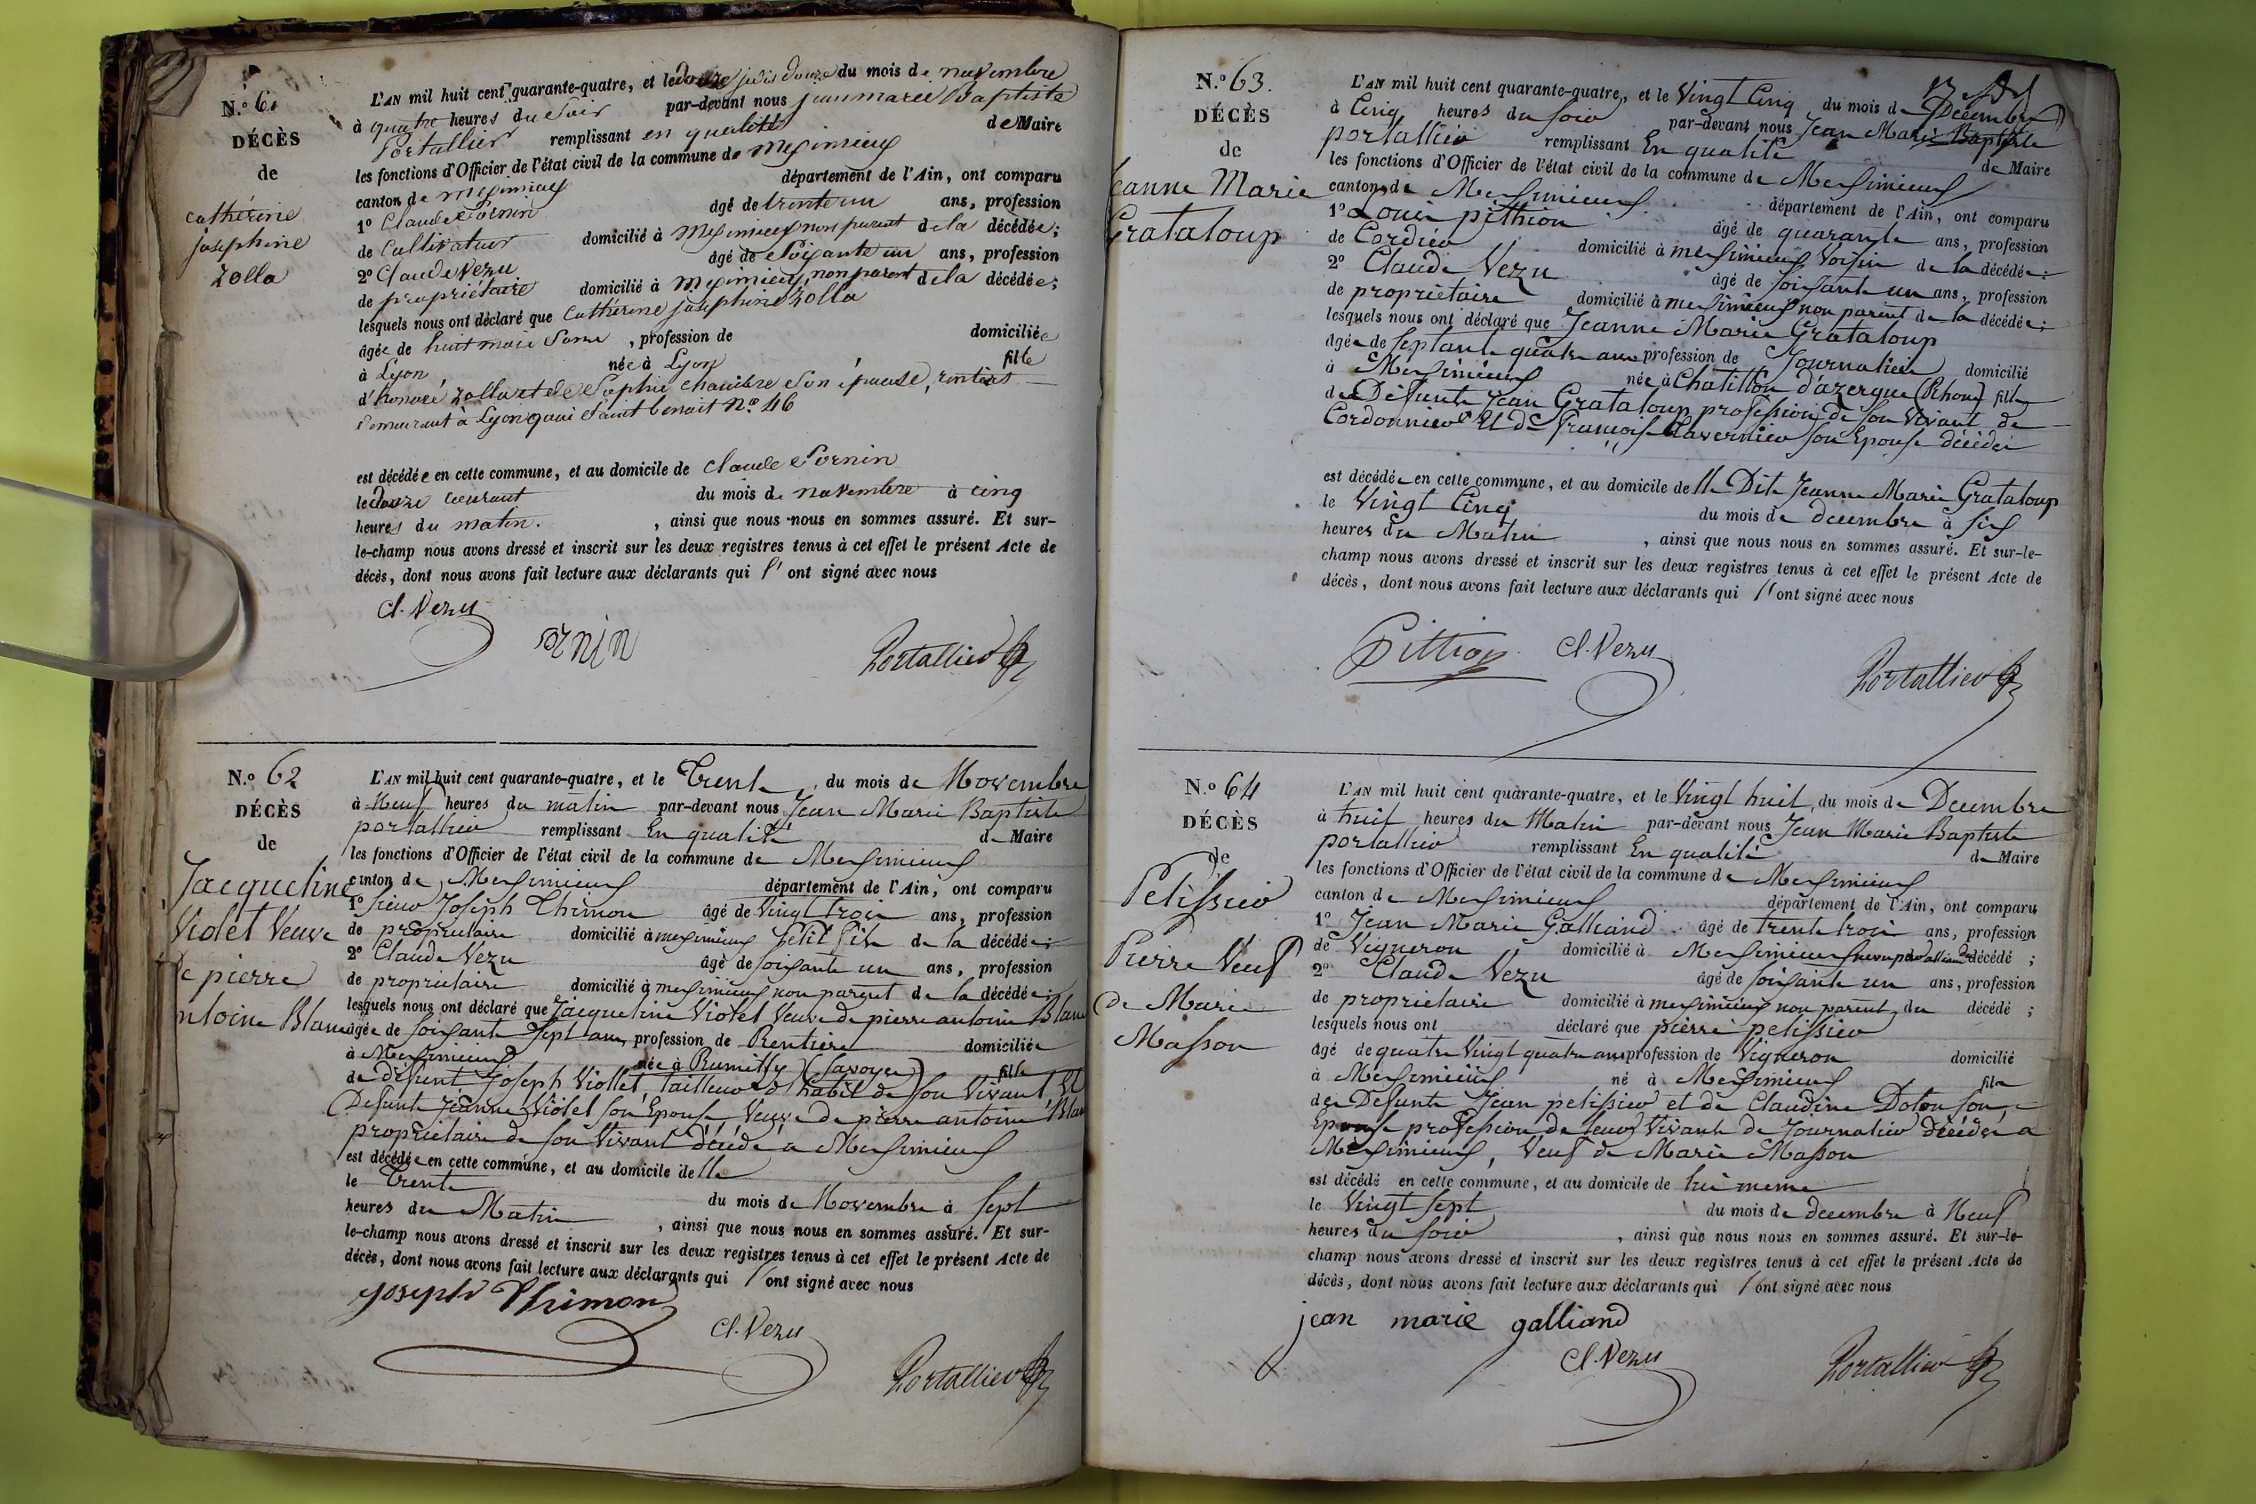 N.º 61
DÉCÈS
de
catherine
josephine
zolla
L'AN mil huit cent quarante-quatre, et le douze du mois de novembre
à quatre heures du soir par-devant nous jean marie Baptiste
Portallier remplissant en qualité de Maire
les fonctions d'Officier de l'état civil de la commune de Meximieux
canton de meximieux département de l'Ain, ont comparu
1º Claude Sornin âgé de trente un ans, profession
de Cultivateur domicilié à Meximieux non parent de la décédée;
2º Claude Vezu âgé de Soixante un ans, profession
de propriétaire domicilié à Meximieux non parent de la décédée;
lesquels nous ont déclaré que Catherine josephine zolla
âgée de huit mois , profession de domiciliée
à Lyon née à Lyon fille
d'honoré zolla et de Sophie son épouse, rentiers
demeurant à Lyon quai Saint benoit Nº 46
est décédée en cette commune, et au domicile de claude Sornin
le douze courant du mois de novembre à cinq
heures du matin. , ainsi que nous nous en sommes assuré. Et sur-
le-champ nous avons dressé et inscrit sur les deux registres tenus à cet effet le présent Acte de
décès, dont nous avons fait lecture aux déclarants qui l' ont signé avec nous
Cl. Vezu
sornin
Portallier
N.º 62
DÉCÈS
de
Jacqueline
Violet Veuve
de pierre
antoine Blanc
L'AN mil huit cent quarante-quatre, et le Trente du mois de Novembre
à Neuf heures du matin par-devant nous Jean Marie Baptiste
portallier remplissant En qualité de Maire
les fonctions d'Officier de l'état civil de la commune de Meximieux
canton de Meximieux département de l'Ain, ont comparu
1º sieur Joseph Thimon âgé de Vingt trois ans, profession
de propriétaire domicilié à meximieux petit fils de la décédée;
2º Claude Vezu âgé de soixante un ans, profession
de propriétaire domicilié à meximieux non parent de la décédée;
lesquels nous ont déclaré que Jacqueline Violet Veuve de pierre antoine Blanc
âgée de soixante sept ans, profession de Rentière domiciliée
à Meximieux née à Rumilly (Savoye) fille
de défunt Joseph Viollet, tailleur d'habit de son Vivant Et
Defunte Jeanne Violet son Epouse, Veuve de pierre antoine Blanc
propriétaire de son Vivant décédé a Meximieux
est décédée en cette commune, et au domicile delle
le Trente du mois de Novembre à Sept
heures du Matin , ainsi que nous nous en sommes assuré. Et sur-
le-champ nous avons dressé et inscrit sur les deux registres tenus à cet effet le présent Acte de
décès, dont nous avons fait lecture aux déclarants qui l'ont signé avec nous
joseph Thimon
Cl. Vezu
Portallier
N.º 63.
DÉCÈS
de
Jeanne Marie
Grataloup
L'AN mil huit cent quarante-quatre, et le Vingt Cinq du mois de Décembre
à Cinq heures du soir par-devant nous Jean Marie Baptiste
portallier remplissant En qualité de Maire
les fonctions d'Officier de l'état civil de la commune de Meximieux
canton de Meximieux département de l'Ain, ont comparu
1º Louis pithion âgé de quarante ans, profession
de Cordier domicilié à meximieux Voisin de la décédée;
2º Claude Vezu âgé de soixante un ans, profession
de propriétaire domicilié à meximieux non parent de la décédée;
lesquels nous ont déclaré que Jeanne Marie Grataloup
âgée de septante quatre ans profession de Journalier domicilié
à Meximieux née à Chatillon d'azergue (Rhone) fille
de Défunt Jean Grataloup profession de son Vivant de
Cordonnier Et de françoise son Epouse décédée
est décédée en cette commune, et au domicile de la Dite Jeanne Marie Grataloup
le Vingt Cinq du mois de decembre à six
heures du Matin , ainsi que nous nous en sommes assuré. Et sur-le-
champ nous avons dressé et inscrit sur les deux registres tenus à cet effet le présent Acte de
décès, dont nous avons fait lecture aux déclarants qui l'ont signé avec nous
Pittion
Cl. Vezu
Portallier
N.º 64
DÉCÈS
de
Pelissier
Pierre Veuf
de Marie
Masson
L'AN mil huit cent quarante-quatre, et le Vingt huit, du mois de Decembre
à huit heures du Matin par-devant nous Jean Marie Baptiste
portallier remplissant En qualité de Maire
les fonctions d'Officier de l'état civil de la commune de Meximieux
canton de Meximieux département de l'Ain, ont comparu
1º Jean Marie Galliand âgé de trente trois ans, profession
de Vigneron domicilié à Meximieux neveu par alliance du décédé ;
2º Claude Vezu âgé de soixante un ans, profession
de propriétaire domicilié à meximieux non parent du décédé ;
lesquels nous ont déclaré que pierre pelissier
âgé de quatre Vingt quatre ans profession de Vigneron domicilié
à Meximieux né à Meximieux fils
de Defunts Jean pelissier et de Claudine son
Epouse profession de leurs Vivants de Journalier décédés a
Meximieux, Veuf de Marie Masson
est décédé en cette commune, et au domicile de lui meme
le Vingt sept du mois de decembre à Neuf
heures du soir , ainsi que nous nous en sommes assuré. Et sur-le-
champ nous avons dressé et inscrit sur les deux registres tenus à cet effet le présent Acte de
décès, dont nous avons fait lecture aux déclarants qui l'ont signé avec nous
jean marie galliand
Cl. Vezu
Portallier